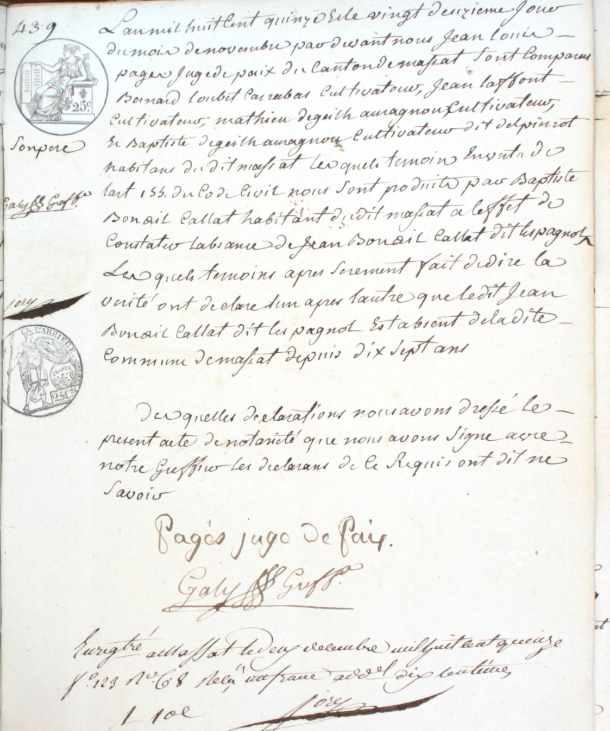 439
L'an mil huit cent quinze Et le vingt deuzieme jour
du mois de novembre par devant nous Jean louis
pages Juge de paix du Canton de massat Sont Comparus
Bernard loubet Carrabas Cultivateur, Jean laffont
Cultivateur, mathieu degeilh amagnou Cultivateur,
Et Baptiste degeilh amagnou Cultivateur dit delpinrot
habitans dudit massat Lesquels temoin En vertu de
lart 155. du Code Civil nous Sont produits par Baptiste
Boneil Callat habitant dudit massat a leffet de
Constater labsance de Jean Boneil Callat dit lespagnol
Lesquels temoins apres Serement fait de dire la
verité ont declare lun apres lautre que ledit Jean
Boneil Callat dit lespagnol Est absent de ladite
Commune de massat depuis dix Sept ans
Des quelles declarations nous avons dressé le
present acte de notorieté que nous avons Signe avec
notre Greffier les declarans de ce Requis ont dit ne
Savoir
Pagés juge de Paix.
Galy Greff.
Enregtré a Massat le deux decembre mil huit cent quinze
fo. 123 Ro. C 8 Reçu un franc dix centimes
1 10c
Son pere
Galy Greff.
25c